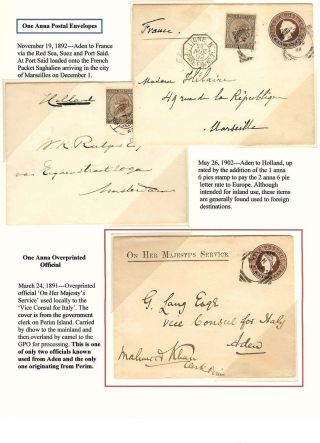 One Anna Postal Envelopes
November 19, 1892—Aden to France
via the Red Sea, Suez and Port Said.
At Port Said loaded onto the French
Packet Saghalien arriving in the city
of Marseilles on December 1.
France
LIGNE N
Madame Hilaire
49 rue de la République
Marseille
Holland
Amsterdam
May 26, 1902—Aden to Holland, up
rated by the addition of the 1 anna
6 pies stamp to pay the 2 anna 6 pie
letter rate to Europe. Although
intended for inland use, these items
are generally found used to foreign
destinations.
One Anna Overprinted
Official
March 24, 1891—Overprinted
official 'On Her Majesty's
Service' used locally to the
'Vice Consul for Italy'. The
cover is from the government
clerk on Perim Island. Carried
by dhow to the mainland and
then overland by camel to the
GPO for processing. This is one
of only two officials known
used from Aden and the only
one originating from Perim.
ON HER MAJESTY'S SERVICE
G. Lang Esqr
Vice Consul for Italy
Aden
Mahmood Khan
Clerk Perim